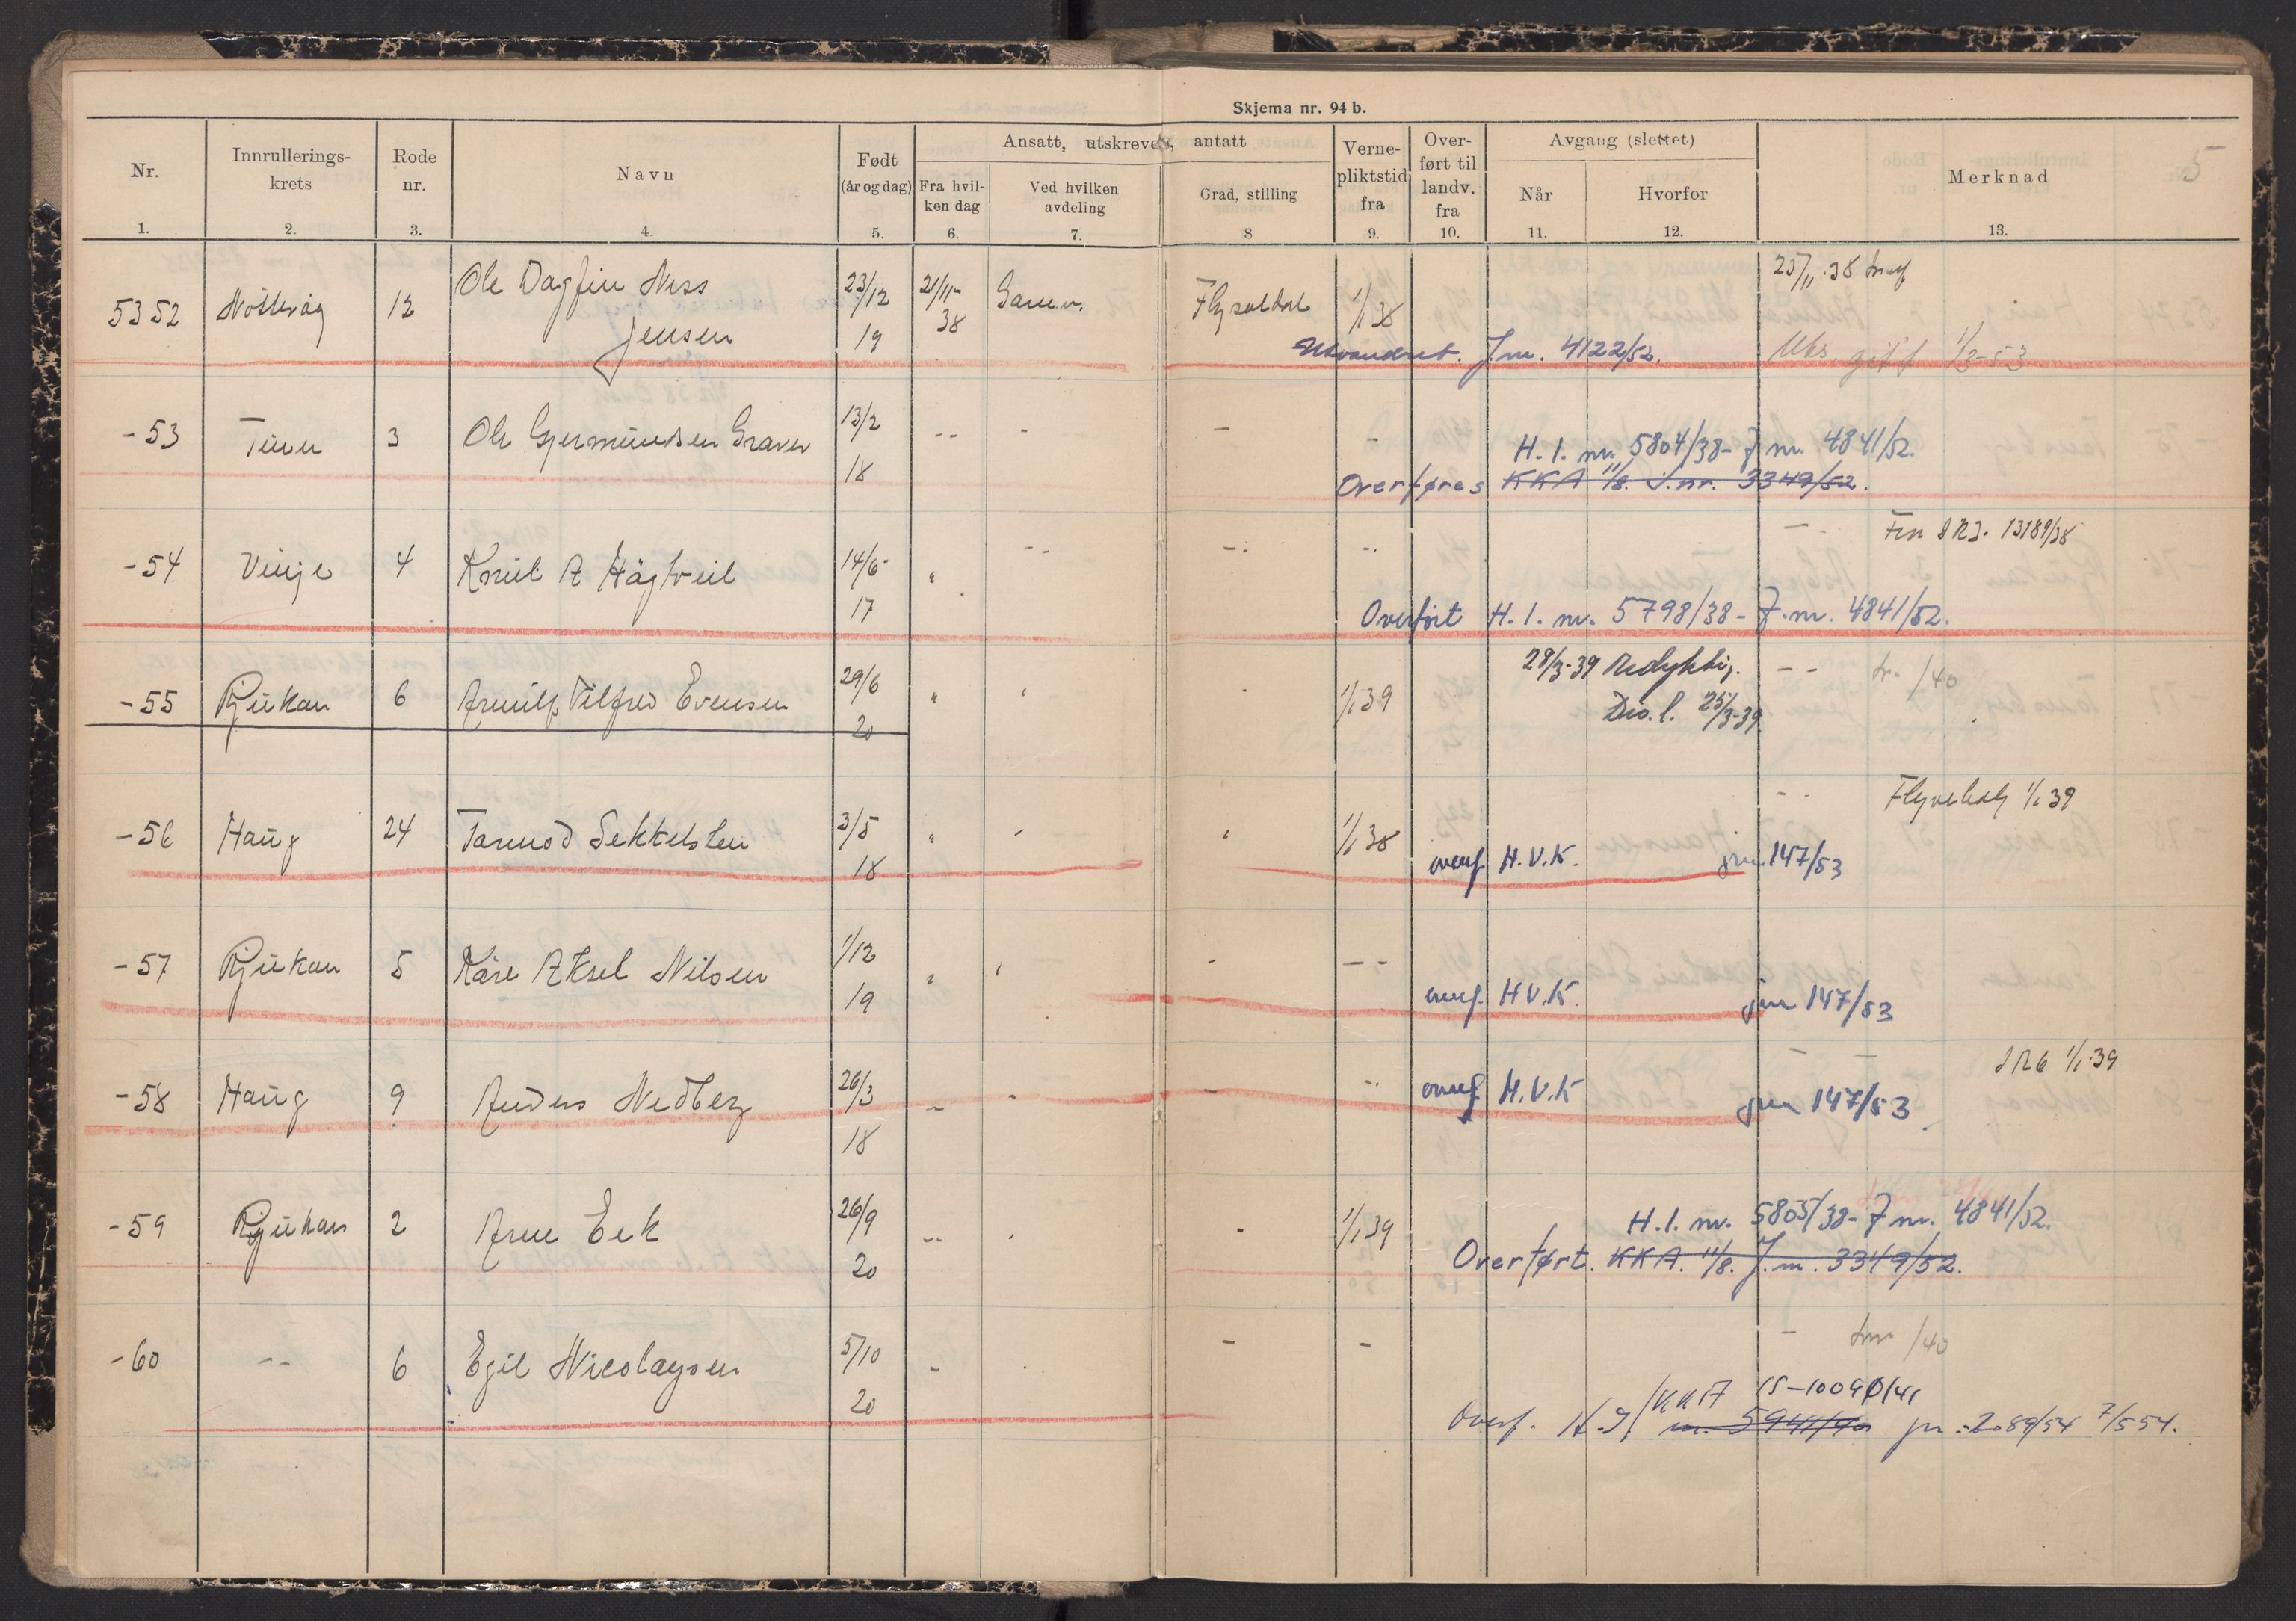 Skjema nr. 94 b.
5
Nr. Innrullerings-krets Rode nr. Navn Født (år og dag) Ansatt, utskrevet, antatt Verne-pliktstid fra Over-ført til landv. fra Avgang (slettet) Merknad
Fra hvil-ken dag Ved hvilken avdeling Grad, stilling Når Hvorfor
1. 2. 3. 4. 5. 6. 7. 8 9. 10. 11. 12. 13.
25/11.38
5352 Nøtterøy 12 Ole Dagfin Ness 23/12 21/11- Flysoldat 1/1 38
Jensen 19 38
Utvandret. J.nr. 4122/52. 1/3-53
-53 Tinn 3 Ole Gjermundsen Graver 13/2 -- - - -
18
H.I. nr. 5804/38- J nr. 4841/52.
Overføres KKA 11/8. J.nr. 3349/52.
-- Fra IR3. 13189/38
-54 Vinje 4 Knut A Hågtveit 14/6- -- -- --
17
Overført H.I. nr. 5798/38- J.nr. 4841/52.
-55 Rjukan 6 Arnulf Vilfred Evensen 29/6 1/1 39 28/3-39 Udyktig. -- /40
20 Dis.l. 25/3-39
-- 1/1 39
-56 Haug 24 Tormod Sekkelsten 3/5 1/1 38
18 overf. H.V.K. jnr 147/53
-57 Rjukan 5 Kåre Aksel Nilsen 1/12 - --
19 overf. H.V.K. jnr 147/53
IR6 1/1-39
-58 Haug 9 Anders Nedberg 26/3 - - - -- overf. H.V.K jnr 147/53
18
-59 Rjukan 2 Arne Eek 26/9 -- - 1/1 39 H.I. nr. 5805/38- J nr. 4841/52.
20 Overført. KKA. 11/8. J.nr. 3349/52.
-60 -- 6 Egil Nicolaysen 5/10 - - - - /40
20
KKA 15-10090/41
Overf. H.I/ nr. 5941/40 jnr: 2089/54 7/5 54.